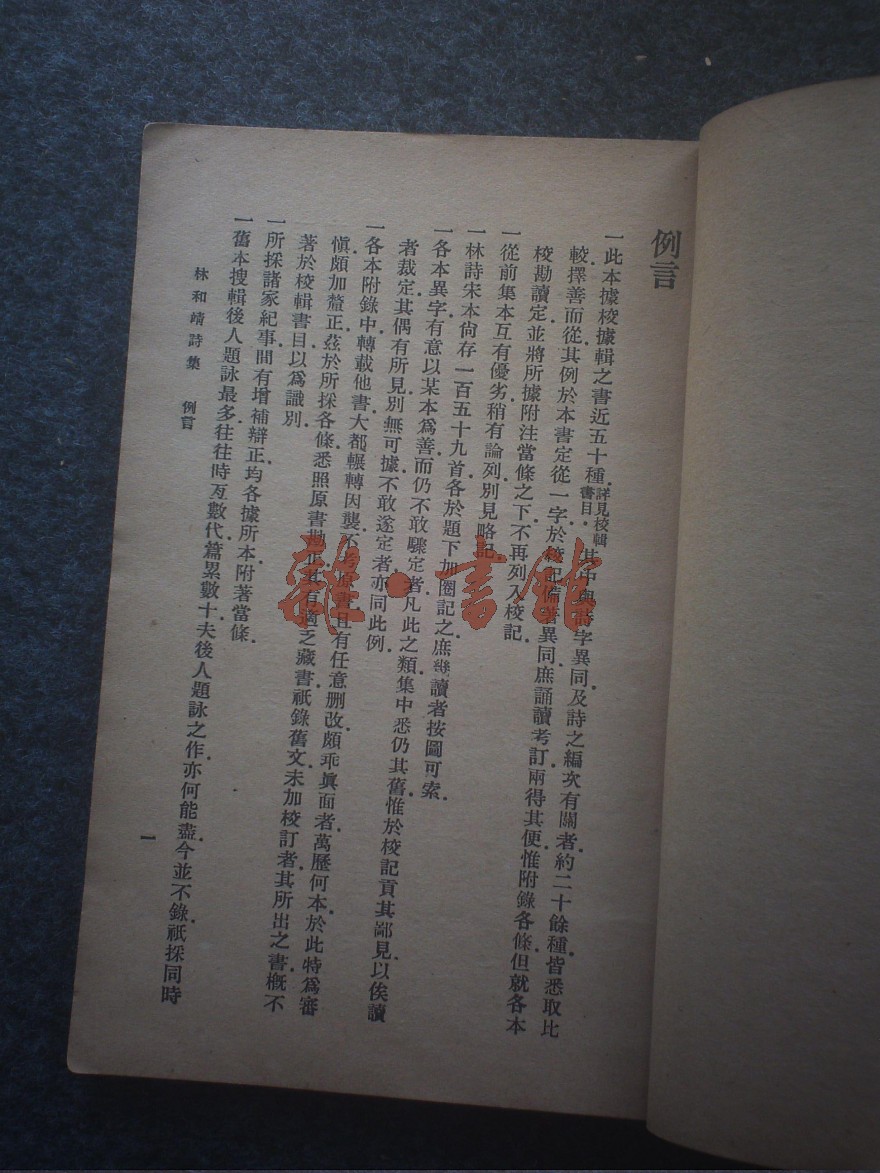 例言
一此本據校據輯之書近五十種．詳見校輯書目．其中與詩字異同．及詩之編次有關者．約二十餘種．皆悉取比
較．擇善而從．其例於本書定從一字．於校記備著異同．庶誦讀考訂．兩得其便．惟附錄各條．但就各本
校勘讀定．並將所據附注當條之下．不再列入校記．
一從前集本互有優劣．稍有論列．別見略記．
一林詩宋本尙存一百五十九首．各於題下加圈記之．庶幾讀者按圖可索．
一各本異字．有意以某本爲善．而仍不敢驟定者．凡此之類．集中悉仍其舊．惟於校記貢其鄙見．以俟讀
者裁定．其偶有所見．別無可據．不敢遂定者．亦同此例．
一各本附錄中轉載他書．大都輾轉因襲．不 原書．且有任意删改．頗乖眞面者．萬歷何本．於此特爲審
愼．頗加釐正．茲於所採各條．悉照原書勘正．其有適乏藏書．祇錄舊文．未加校訂者．其所出之書．槪不
著於校輯書目．以爲識別．
一所採諸家紀事．間有增補辯正．均各據所本．附著當條．
一舊本搜輯後人題詠最多．往往時亙數代．篇累數十．夫後人題詠之作．亦何能盡．今並不錄．祇採同時
林和靖詩集　例言
一
雜·書館